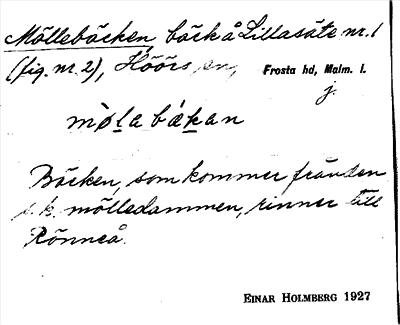 Möllebäcken, bäck å Lillasäte nr. 1
(fig. nr. 2), Höörs sn, Frosta hd, Malm. l.
j.
mø̀la bákan
Bäcken, som kommer från den
s. k. mölledammen, rinner till
Rönneå.
EINAR HOLMBERG 1927